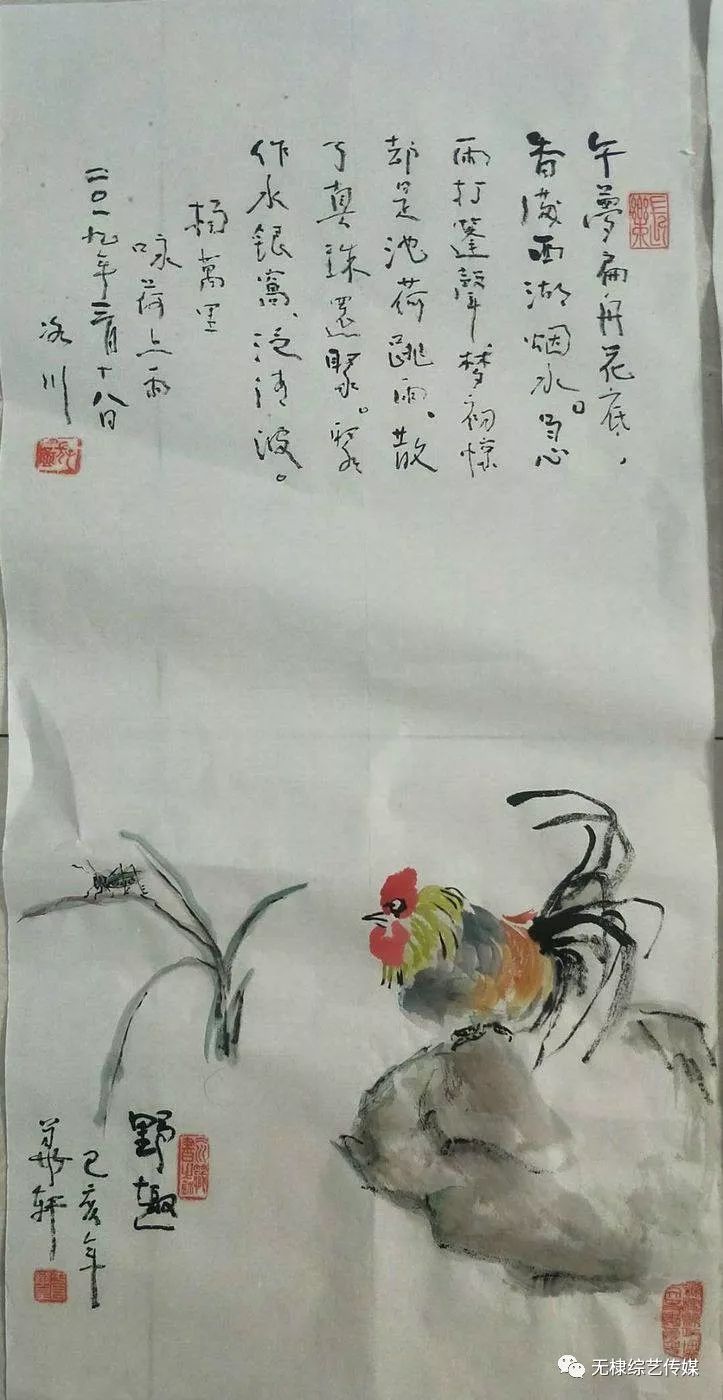 午夢扁舟花底，
香满西湖烟水。急
雨打篷聲梦初惊
却是池荷跳雨、散
了真珠還聚。聚
作水银窝、泛清波。
楊萬里
咏荷上雨
二〇一九年三月十八日
洛川
長樂
野趣
己亥年
轩
无棣综艺传媒